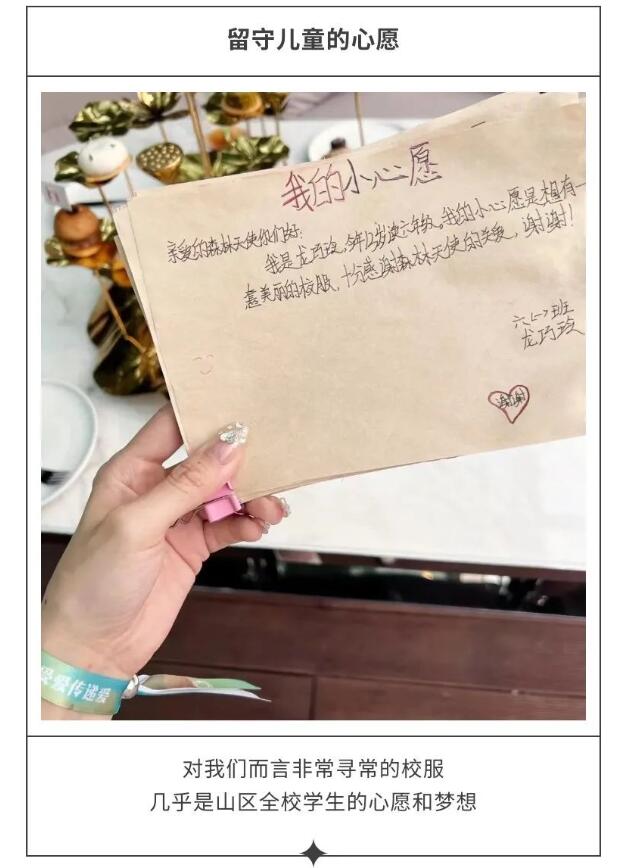 留守儿童的心愿
我的小心愿
亲爱的森林天使你们好:
我是龙巧玲,今年12岁读六年级。我的小心愿是想有一
套美丽的校服,十分感谢森林天使的关爱,谢谢!
六(一)班
龙巧玲
谢谢
爱传递爱
对我们而言非常寻常的校服
几乎是山区全校学生的心愿和梦想